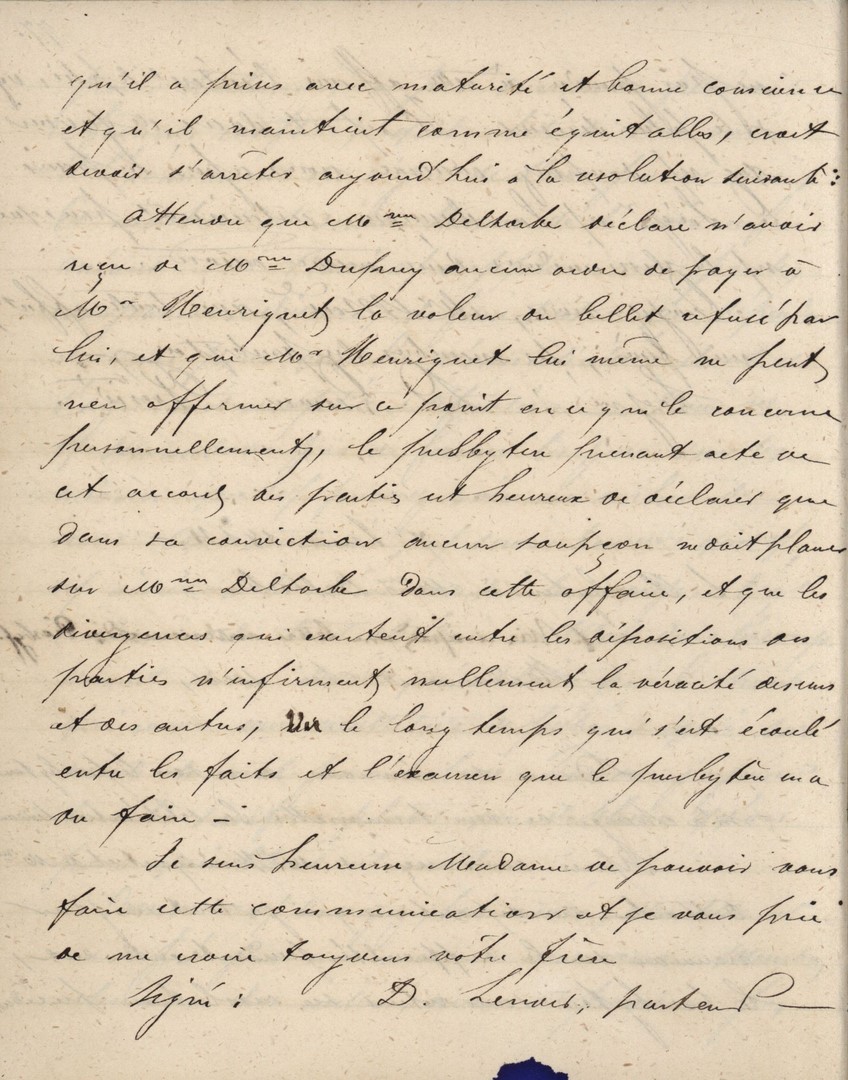 qu'il a prises avec maturité et bonne conscience
et qu'il maintient comme équitables, croit
devoir s'arrêter aujourd'hui à la résolution suivante :
Attendu que Mme Deltorbe déclare n'avoir
reçu de Mme Dupuy aucun ordre de payer à
Mr Henriquet la valeur du billet refusé par
lui, et que Mr Henriquet lui même ne peut
rien affirmer sur ce point en ce qui le concerne
personnellement, le presbytère prenant acte de
cet accord des parties est heureux de déclarer que
dans sa conviction aucun soupçon ne doit planer
sur Mme Deltorbe dans cette affaire, et que les
divergences qui existent entre les dépositions des
parties n'infirment nullement la véracité des uns
et des autres, Vu le long temps qui s'est écoulé
entre les faits et l'examen que le presbytère en a
du faire -
Je suis heureux Madame de pouvoir vous
faire cette communication et je vous prie
de me croire toujours votre frère
Signé : D. Lenoir, pasteur